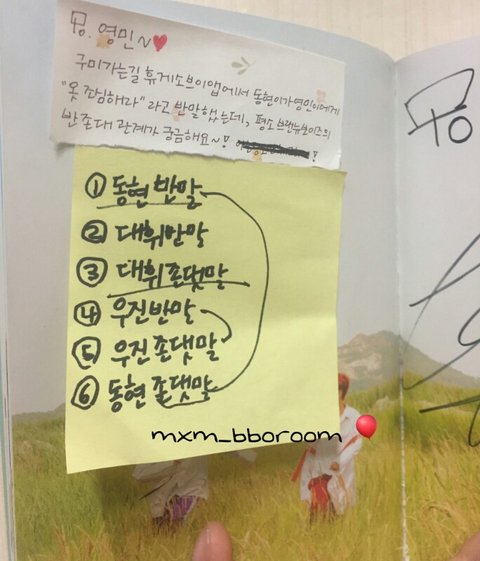 To. 영민~♥
구미가는길 휴게소브이앱에서 동현이가영민이에게
"옷 조심해라" 라고 반말했는데, 평소 브랜뉴보이즈의
반존대 관계가 궁금해요~! !
① 동현 반말
② 대휘반말
③ 대휘존댓말
④ 우진반말
⑤ 우진존댓말
⑥ 동현존댓말
mxm_bboroom
To